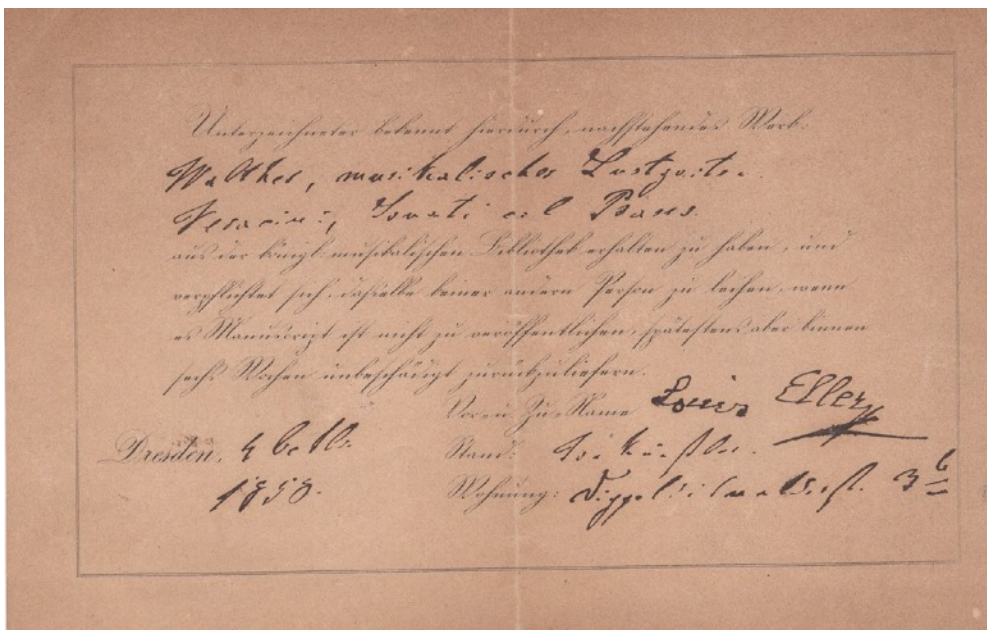 Unterzeichneter bekennt hierdurch, nachstehendes Werk:
Walther, musikalischer
Veracini, Sonate
aus der königl: musikalischen Bibliothek erhalten zu haben, und
verpflichtet sich, dasselbe keiner andern Person zu leihen, wenn
es Manuscript ist nicht zu veröffentlichen, spätestens aber binnen
sechs Wochen unbeschädigt zurückzuliefern.
Vor- u. Zu-Name Louis Eller
Dresden, 4
Stand: Tonkünstler.
1858.
Wohnung: 3b